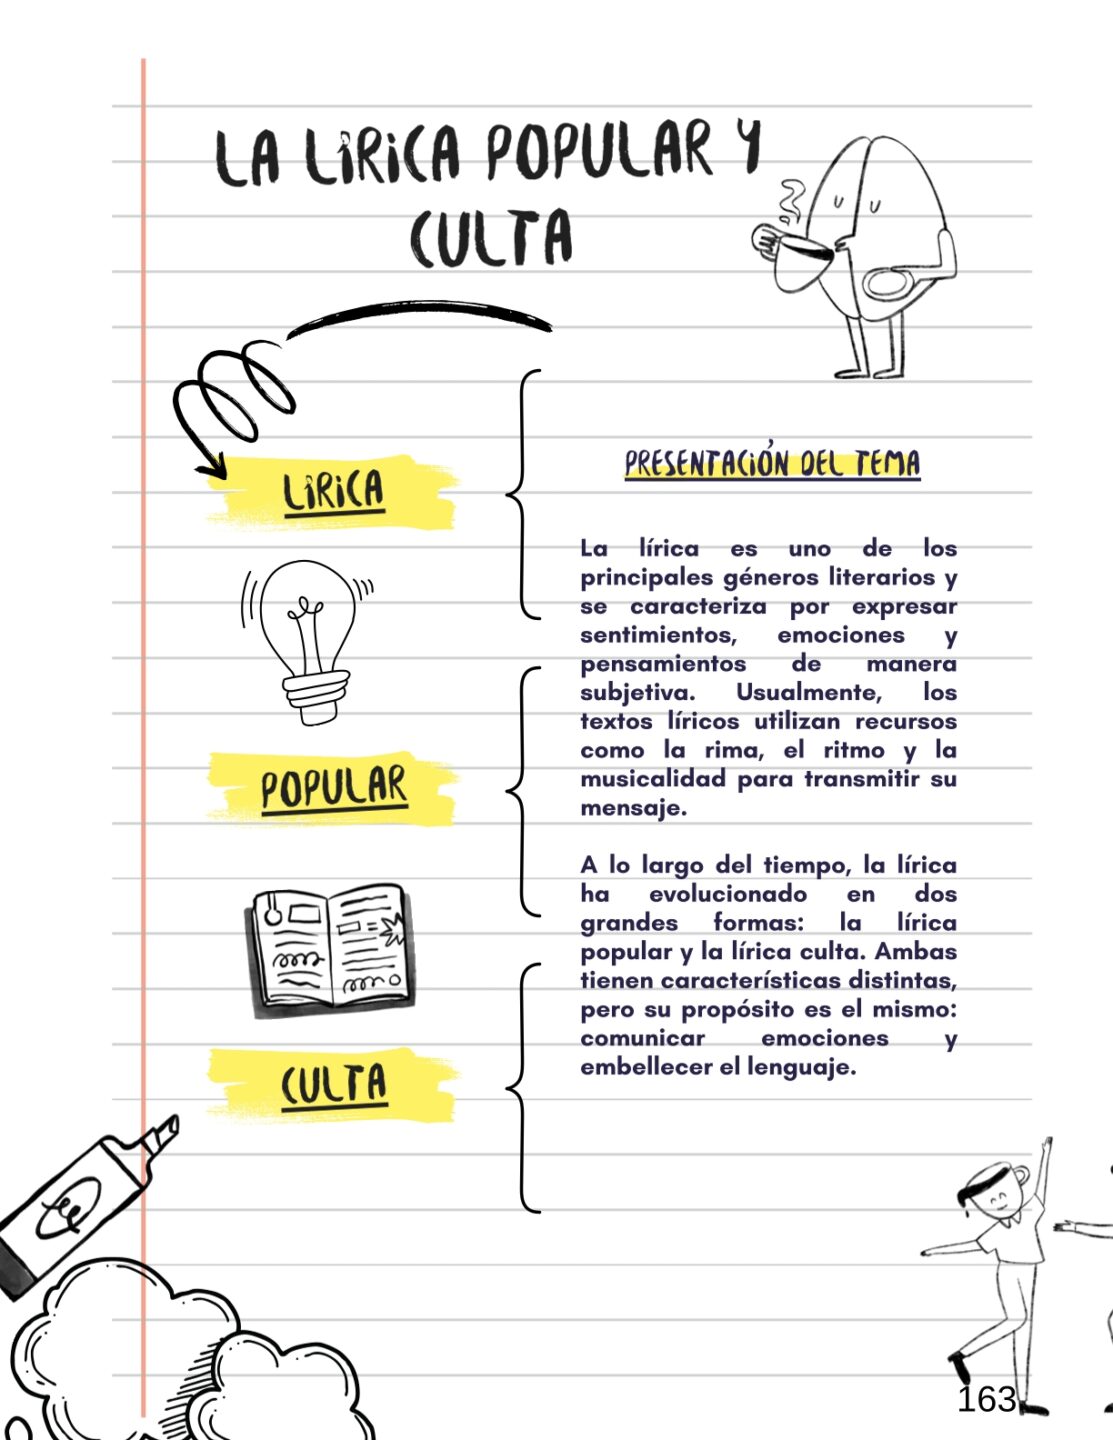 LA LÍRICA POPULAR Y
CULTA
LÍRICA
POPULAR
CULTA
PRESENTACIÓN DEL TEMA
La lírica es uno de los
principales géneros literarios y
se caracteriza por expresar
sentimientos, emociones y
pensamientos de manera
subjetiva. Usualmente, los
textos líricos utilizan recursos
como la rima, el ritmo y la
musicalidad para transmitir su
mensaje.
A lo largo del tiempo, la lírica
ha evolucionado en dos
grandes formas: la lírica
popular y la lírica culta. Ambas
tienen características distintas,
pero su propósito es el mismo:
comunicar emociones y
embellecer el lenguaje.
163